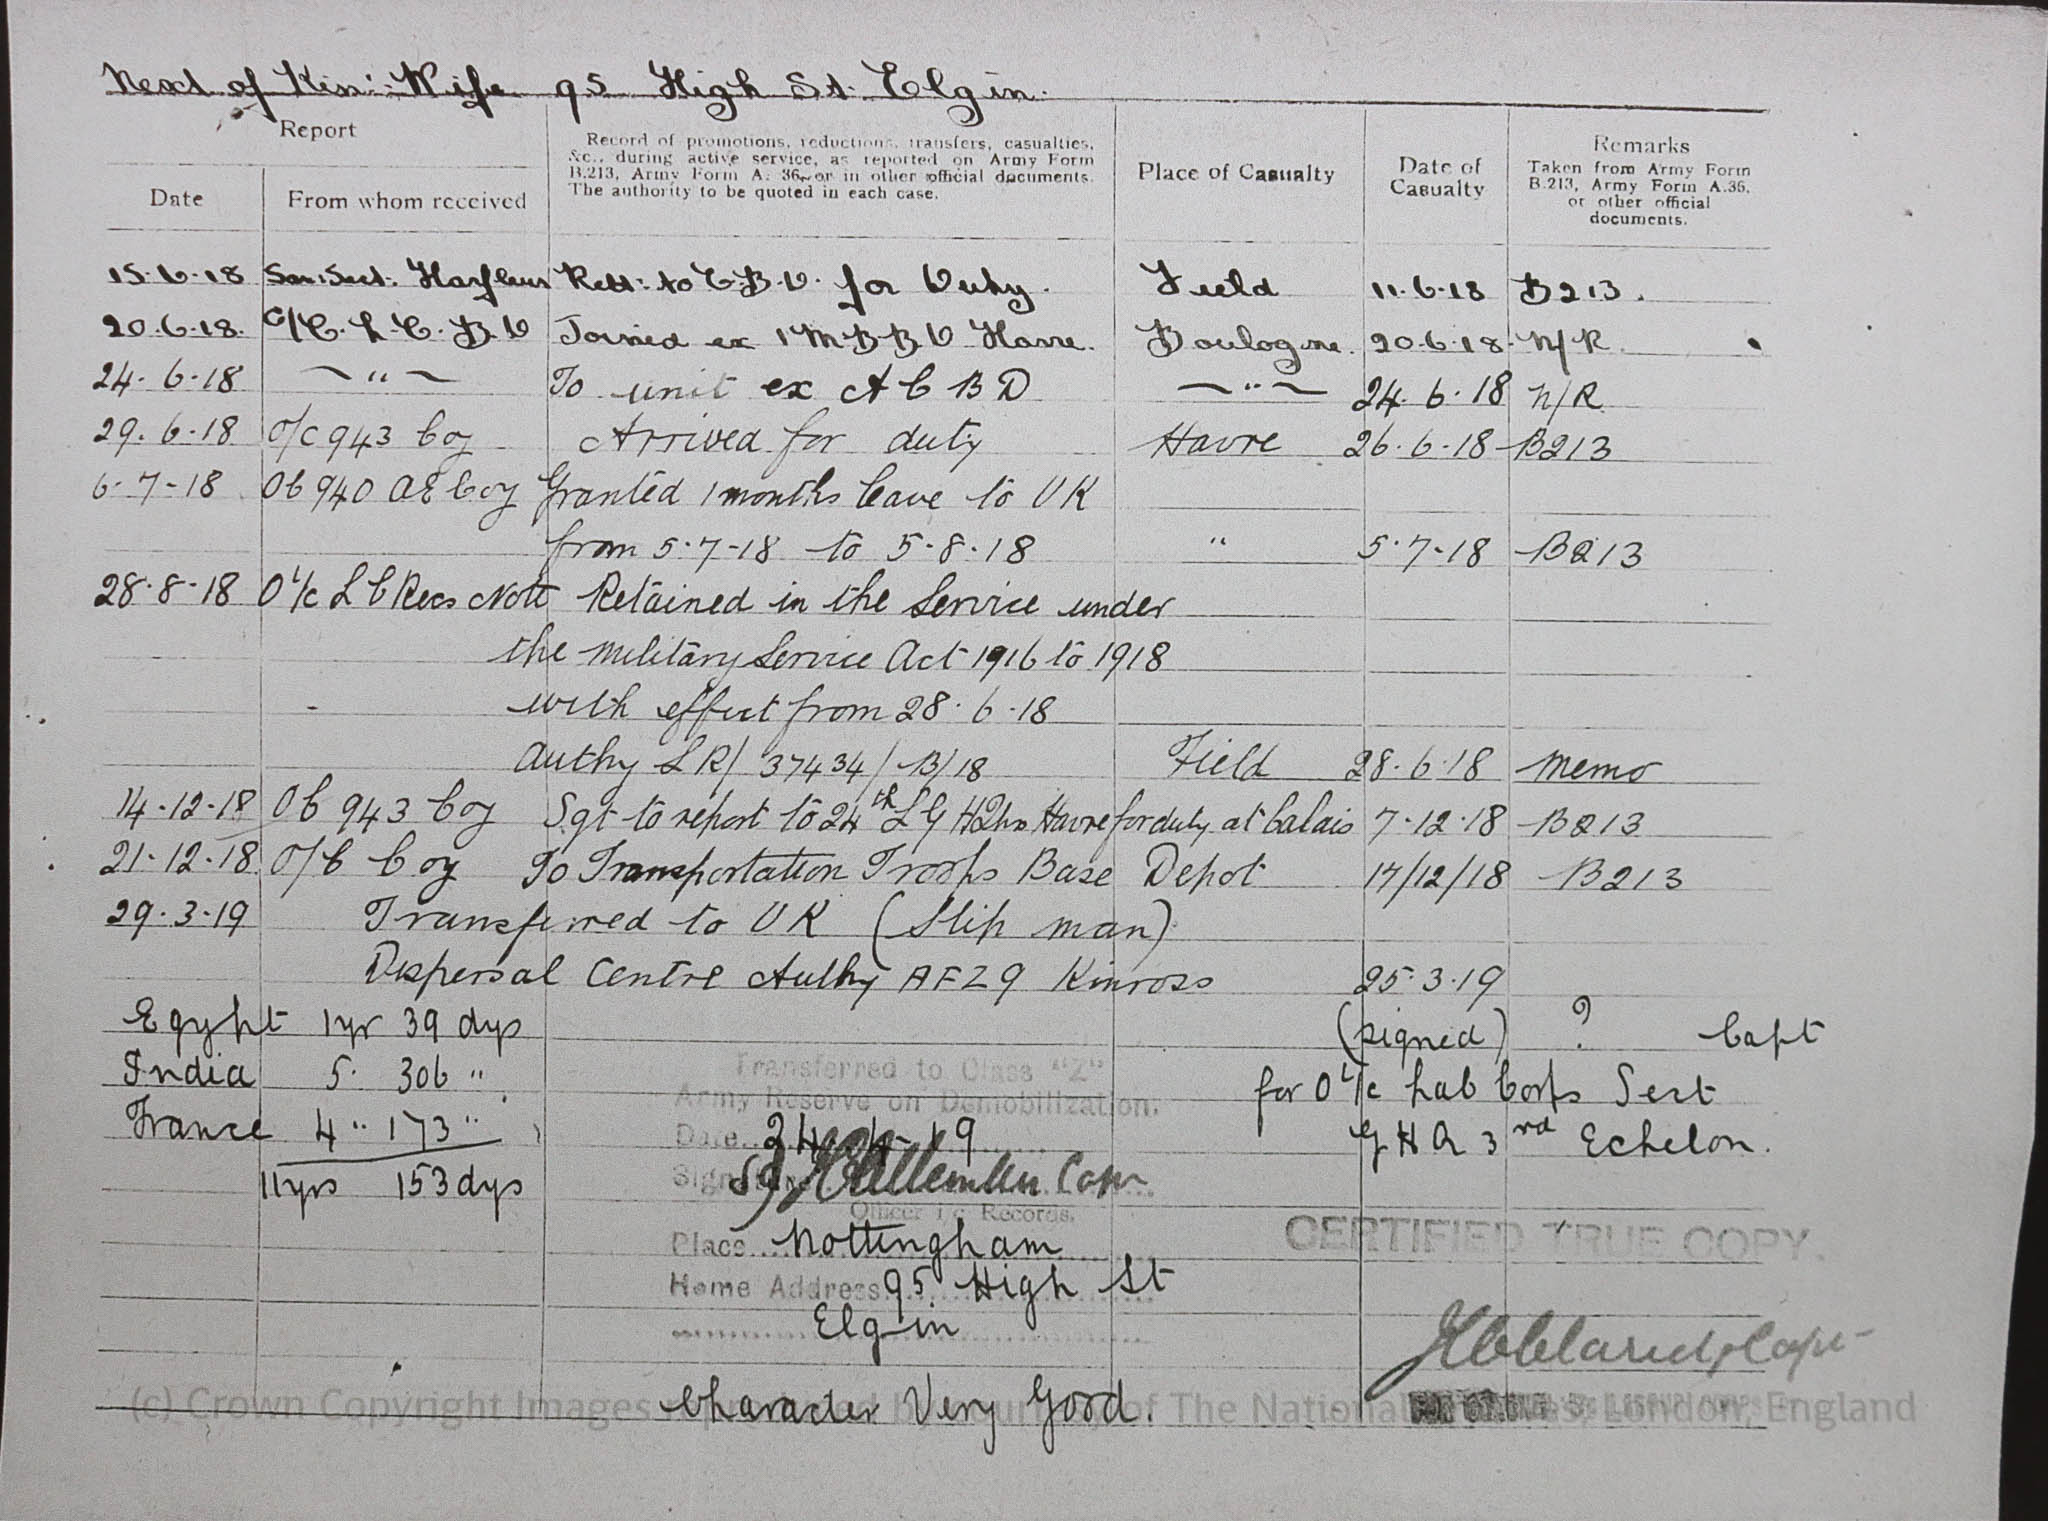 Next of Kin:- Wife 95 High St. Elgin.
Report
Record of promotions, reductions, transfers, casualties, &c., during active service, as reported on Army Form B.213, Army Form A. 36, or in other official documents. The authority to be quoted in each case.
Place of Casualty
Date of Casualty
Remarks
Taken from Army Form B.213, Army Form A.36, or other official documents.
Date
From whom received
15.6.18 San: Sect: Harfleur Retd: to C.B.D. for Duty. Field 11.6.18 B213.
20.6.18. O/C. L.C.B.D Joined ex 1 M.B.B.D Havre. Boulogne. 20.6.18. N/R.
24.6.18 — " — To unit ex A C B D — " — 24.6.18 N/R
29.6.18 O/C 943 Coy Arrived for duty Havre 26.6.18 B213
6.7-18 OC 940 AE Coy Granted 1 months leave to UK
from 5.7-18 to 5.8.18 " 5.7-18 B213
28.8-18 O i/c L C Recs Nott Retained in the Service under
the Military Service Act 1916 to 1918
with effect from 28.6.18
Authy LR/ 37434/ B/18 Field 28.6.18 Memo
14-12-18 OC 943 Coy Sgt to report to 24th L G HQrs Havre for duty at Calais 7-12-18 B213
21-12-18. O/C Coy To Transportation Troops Base Depot 17/12/18 B213
29.3.19 Transferred to UK (Slip man)
Dispersal Centre Authy AFZ9 Kinross 25.3.19
Egypt 1yr 39 dys (signed) ? Capt
India 5. 306 " for O i/c Lab Corps Sect
France 4 " 173 " GHQ 3rd Echelon.
11yrs 153 dys
Transferred to Class "Z"
Army Reserve on Demobilization.
Date 24-4-19
Signature Capt
Officer i/c Records.
Place Nottingham
Home Address 95 High St
Elgin
CERTIFIED TRUE COPY.
Capt
Character Very Good.
(c) Crown Copyright Images reproduced by courtesy of The National Archives, London, England